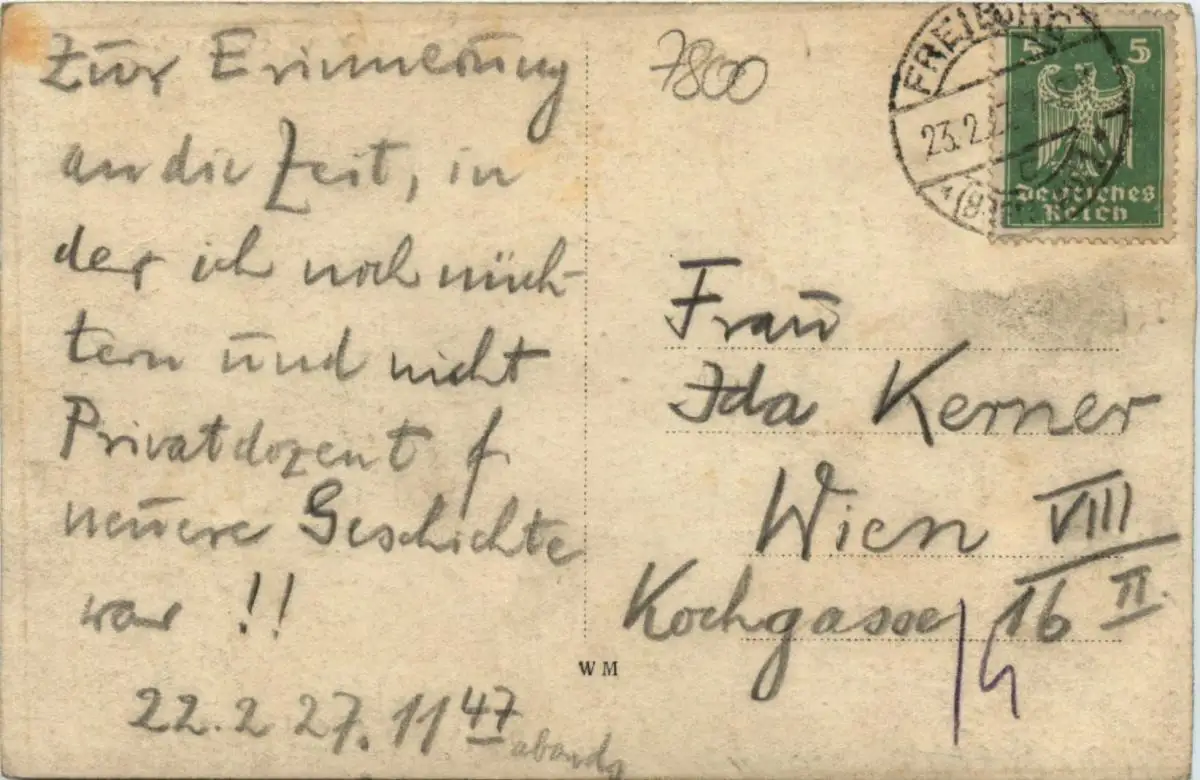 Zur Erinnerung
an die Zeit, in
der ich noch nüch-
tern und nicht
Privatdozent f.
neuere Geschichte
war !!
22.2 27. 11 47 abends
7800
FREIBURG
23.2.2
5 5
Deutsches
Reich
Frau
Ida Kerner
Wien VIII
Kochgasse 16 II.
14
W M